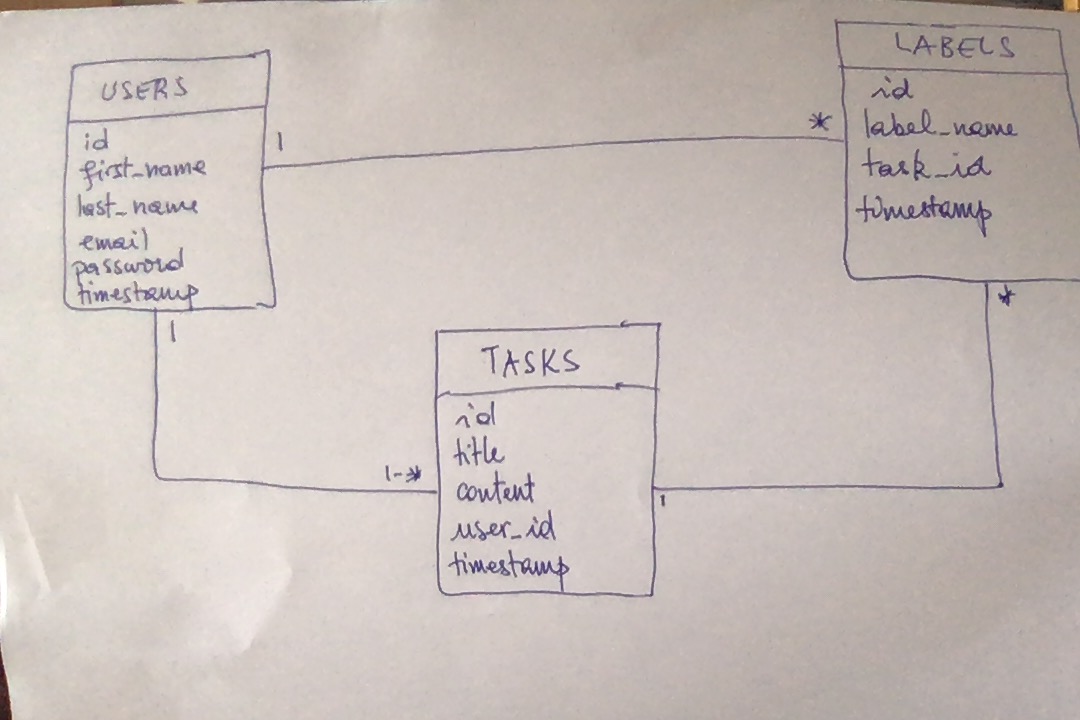 USERS
id
first_name
last_name
email
password
timestamp
1
*
LABELS
id
label_name
task_id
timestamp
*
1
1-*
TASKS
id
title
content
user_id
timestamp
1